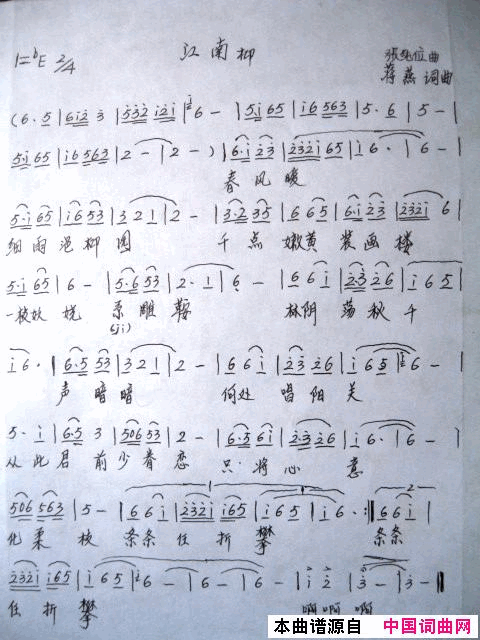 江南柳
1=bE 2/4
曲
蒋燕 词曲
(6·5 | 6i2 3 | 532 i2i | 6 - | 5·i 65 | i6 563 | 5·6 | 5 - |
5·i 65 | i6 563 | 2 - | 2 - ) | 6·i 23 | 232i 65 | i 6· | 6 - |
春风暖
5·i 65 | i6 53 | 3 2 1 | 2 - | 3·2 35 | 6 6 5 | 6·i 23 | 232i 6 |
细雨浥柳圆 千点嫩黄装画楼
5·i 65 | 6 - | 5·6 53 | 2·1 | 6 - | 6 6 i | 23 26 | i 6 5 |
一枝妖娆系雕鞍 林阴荡秋千
(ji)
i 6· | 6·5 53 | 3 2 1 | 2 - | 6 6 i | 23 26 | i 6 5 | 6 - |
声暗暗 何处唱阳关
5· i | 6·5 3 | 506 53 | 2 - | 6·5 6i | 2·3 26 | i 6· | 6 - |
从此君前少眷恋 只将心意
506 563 | 5 - | 6 6 i | 232i i65 | i 6 5 | i 6· :| 6 6 i |
化柔枝 条条任折攀 条条
232i i65 | 6 - | 6 - | 6 - | i 2 | 3 - | 3 - ||
任折攀 啊啊啊
本曲谱源自 中国词曲网